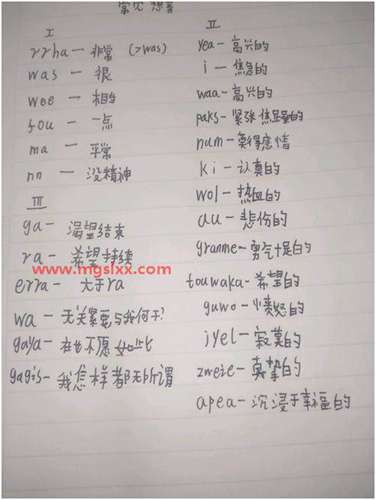 常见想音
I
rrha — 非常 (>was)
was — 很
wee — 相当
fou — 一点
ma — 平常
nn — 没精神
III
ga — 渴望结束
ra — 希望持续
erra — 大于ra
www.mgslxx.com
wa — 无关紧要与我何干?
gaya — 再也不愿如此
gagis — 我怎样都无所谓
II
yea — 高兴的
i — 焦急的
waa — 高兴的
paks — 紧张焦虑的
num — 莫得感情
ki — 认真的
wol — 热血的
au — 悲伤的
granme — 勇气十足的
touwaka — 希望的
guwo — 愤怒的
jyel — 寂寞的
zweie — 真挚的
apea — 沉浸于幸福的